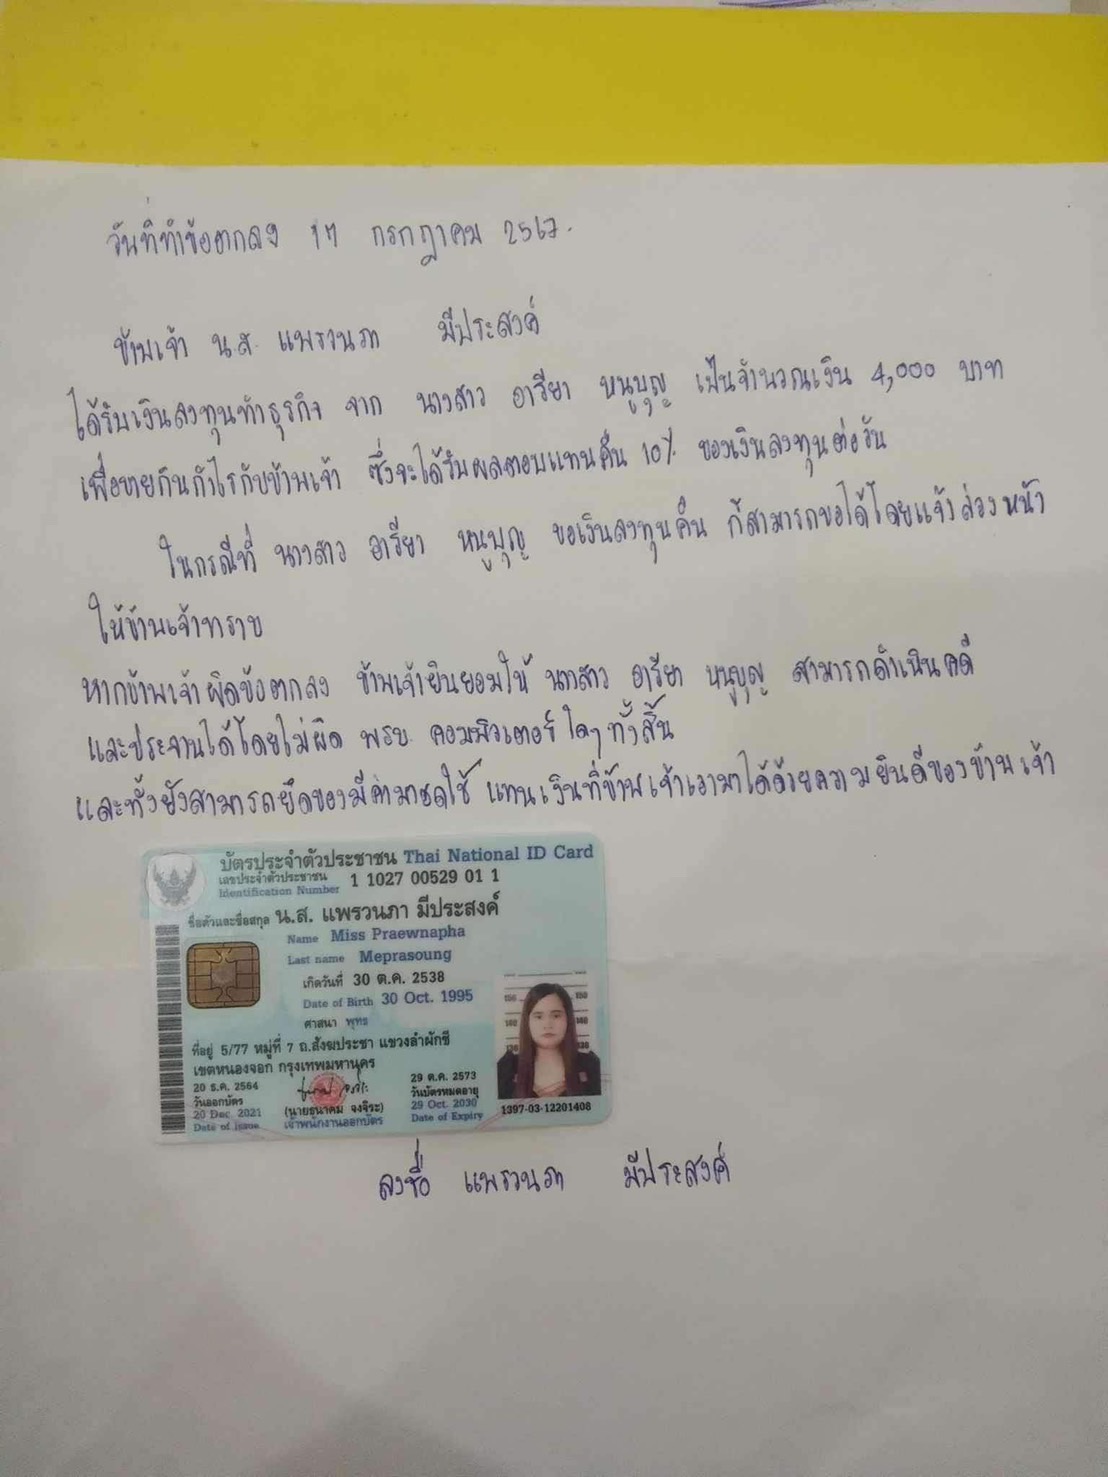 วันที่ทำข้อตกลง 17 กรกฎาคม 2567.
ข้าพเจ้า น.ส. แพรวนภา มีประสงค์
ได้รับเงินลงทุนทำธุรกิจ จาก นางสาว อารียา หนูบุญ เป็นจำนวณเงิน 4,000 บาท
เพื่อขายกินกำไรกับข้าพเจ้า ซึ่งจะได้รับผลตอบแทนคืน 10% ของเงินลงทุนต่อวัน
ในกรณีที่ นางสาว อารียา หนูบุญ ขอเงินลงทุนคืน ก็สามารถขอได้โดยแจ้งล่วงหน้า
ให้ข้าพเจ้าทราบ
หากข้าพเจ้าผิดข้อตกลง ข้าพเจ้ายินยอมให้ นางสาว อารียา หนูบุญ สามารถดำเนินคดี
และประจานได้โดยไม่ผิด พรบ คอมพิวเตอร์ใดๆทั้งสิ้น
และทั้งยังสามารถยึดของมีค่ามาชดใช้ แทนเงินที่ข้าพเจ้าเอามาได้ด้วยความยินดีของข้าพเจ้า
บัตรประจำตัวประชาชน Thai National ID Card
เลขประจำตัวประชาชน
Identification Number 1 1027 00529 01 1
ชื่อตัวและชื่อสกุล น.ส. แพรวนภา มีประสงค์
Name Miss Praewnapha
Last name Meprasoung
เกิดวันที่ 30 ต.ค. 2538
Date of Birth 30 Oct. 1995
ศาสนา พุทธ
ที่อยู่ 5/77 หมู่ที่ 7 ถ.สังฆประชา แขวงลำผักชี
เขตหนองจอก กรุงเทพมหานคร
20 ธ.ค. 2564
วันออกบัตร
20 Dec. 2021
Date of Issue
(นายธนาคม จงจิระ)
เจ้าพนักงานออกบัตร
29 ต.ค. 2573
วันบัตรหมดอายุ
29 Oct. 2030
Date of Expiry
150 150
140 140
130 130
1397-03-12201408
ลงชื่อ แพรวนภา มีประสงค์